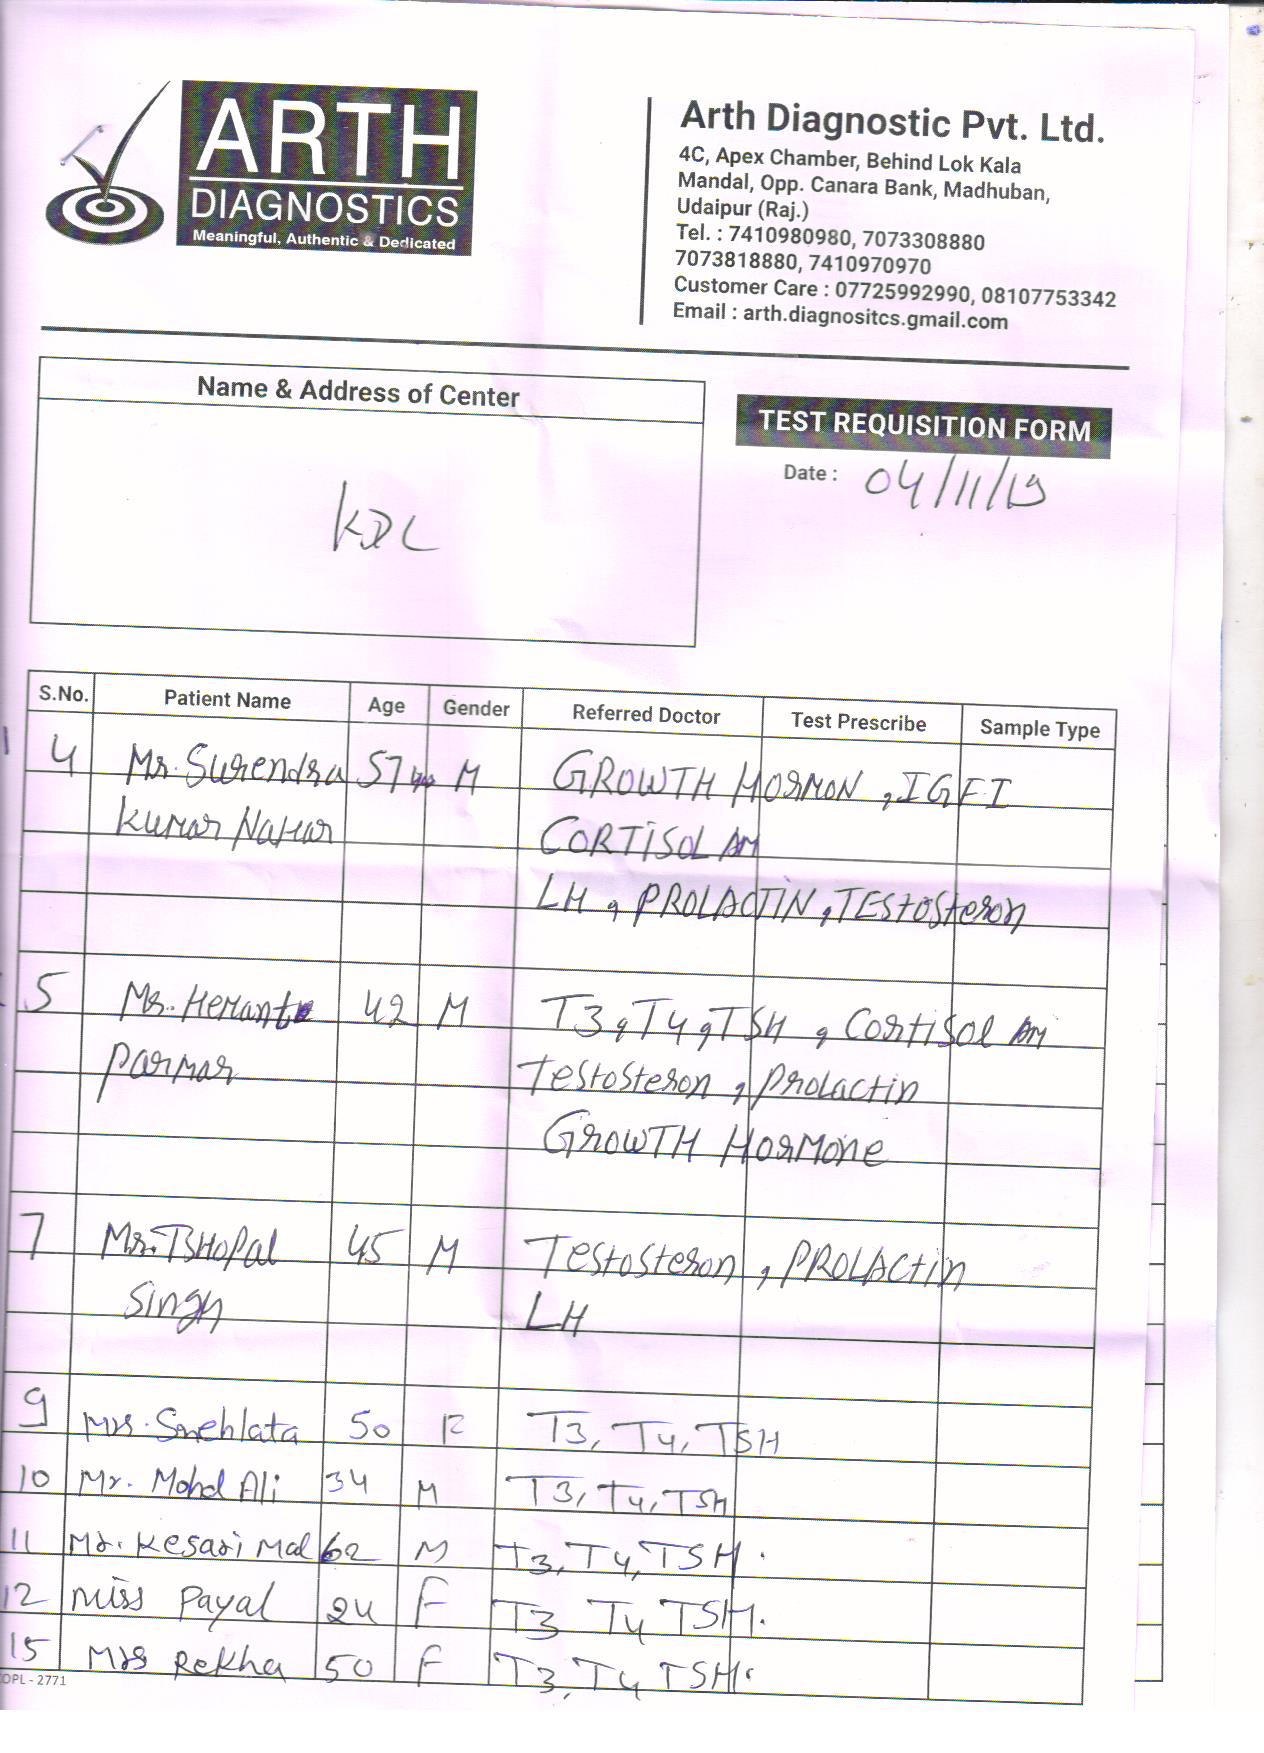 ARTH
DIAGNOSTICS
Meaningful, Authentic & Dedicated
Arth Diagnostic Pvt. Ltd.
4C, Apex Chamber, Behind Lok Kala
Mandal, Opp. Canara Bank, Madhuban,
Udaipur (Raj.)
Tel. : 7410980980, 7073308880
7073818880, 7410970970
Customer Care : 07725992990, 08107753342
Email : arth.diagnositcs.gmail.com
Name & Address of Center
KDC
TEST REQUISITION FORM
Date : 04/11/19
S.No. Patient Name Age Gender Referred Doctor Test Prescribe Sample Type
4 Mr. Surendra 57 M GROWTH HORMON, IGFI
Kumar Nahar CORTISOL AM
LH, PROLACTIN, TESTOSteron
5 Mr. Hemant 42 M T3, T4, TSH, Cortisol AM
Parmar Testosteron, Prolactin
GROWTH HORMONE
7 Mr. BHOPal 45 M Testosteron, PROLACtin
Singh LH
9 Mrs. Snehlata 50 F T3, T4, TSH
10 Mr. Mohd Ali 34 M T3, T4, TSH
11 Mr. Kesari Mal 62 M T3, T4, TSH.
12 Miss Payal 24 F T3 T4 TSH.
15 Mrs Rekha 50 F T3, T4 TSH.
OPL - 2771